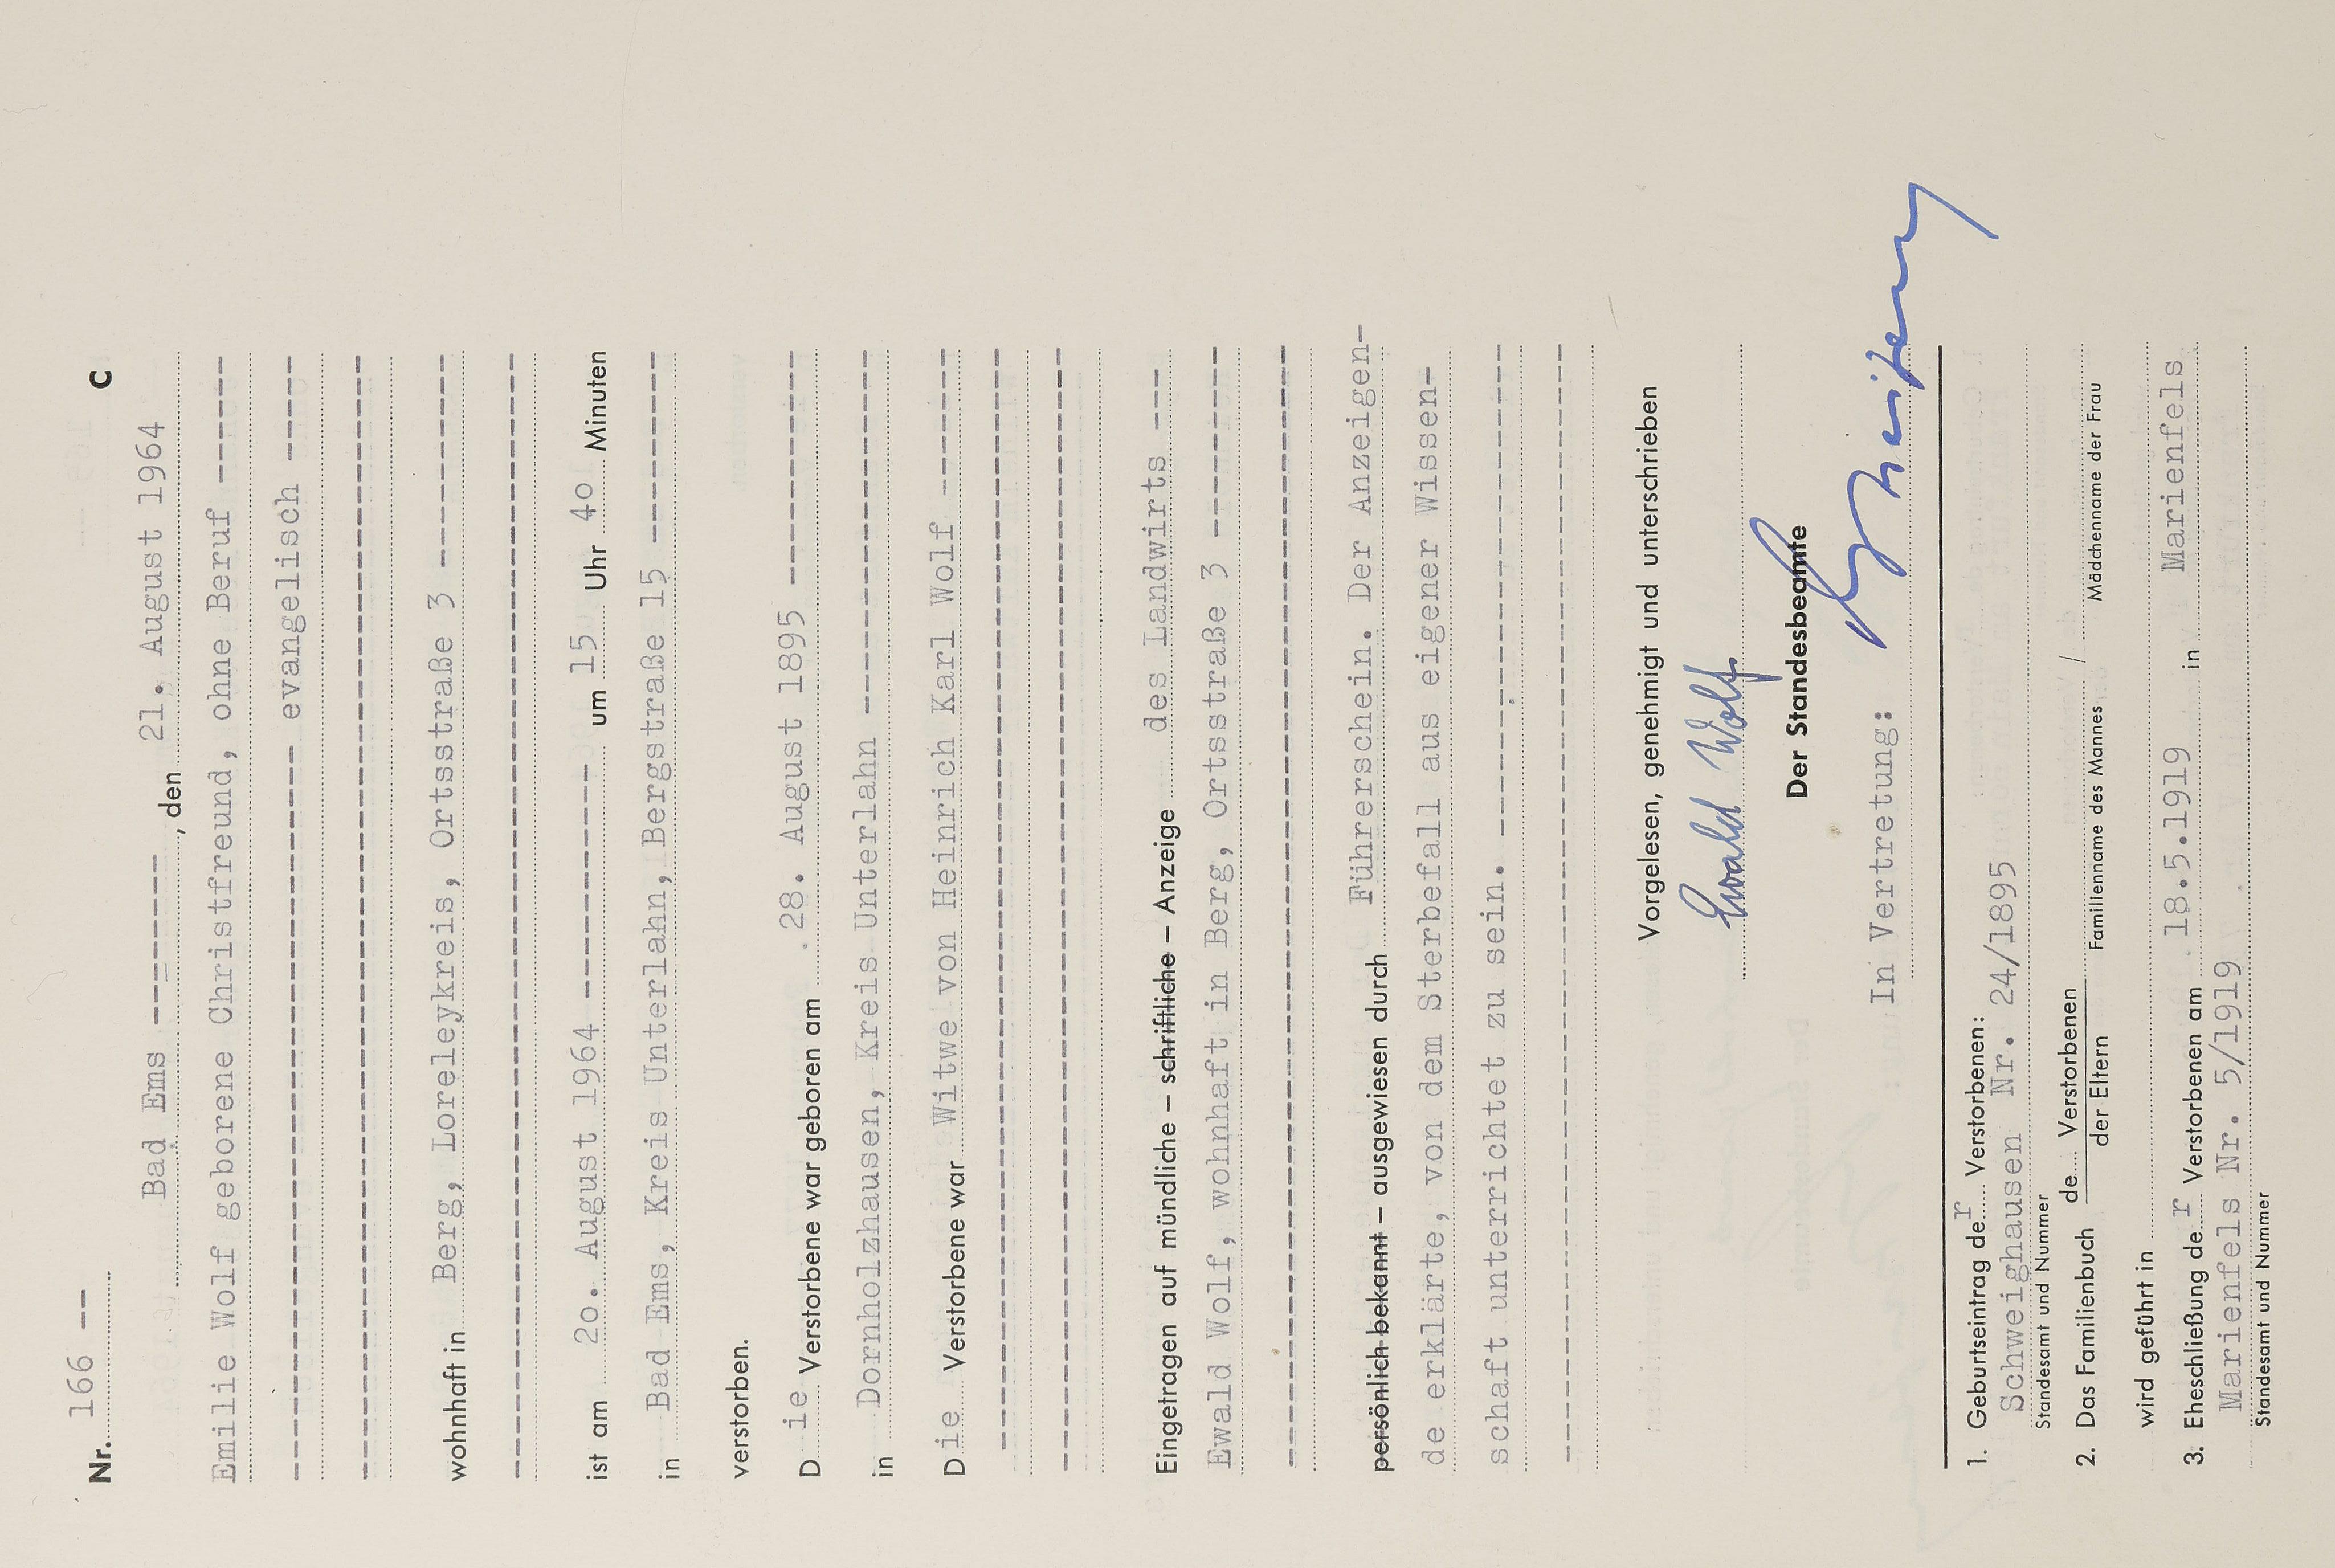 Nr. 166 -- C
Bad Ems -------, den 21. August 1964
Emilie Wolf geborene Christfreund, ohne Beruf ------
---------------------- evangelisch -----
wohnhaft in Berg, Loreleykreis, Ortsstraße 3 ----------
ist am 20. August 1964 ----------- um 15 Uhr 40 Minuten
in Bad Ems, Kreis Unterlahn, Bergstraße 15 ---------
verstorben.
Die Verstorbene war geboren am 28. August 1895 -----------
in Dornholzhausen, Kreis Unterlahn -----------------
Die Verstorbene war Witwe von Heinrich Karl Wolf -------
Eingetragen auf mündliche – schriftliche – Anzeige des Landwirts ---
Ewald Wolf, wohnhaft in Berg, Ortsstraße 3 ---------
persönlich bekannt – ausgewiesen durch Führerschein. Der Anzeigen-
de erklärte, von dem Sterbefall aus eigener Wissen-
schaft unterrichtet zu sein. -----------------------
Vorgelesen, genehmigt und unterschrieben
Ewald Wolf
Der Standesbeamte
In Vertretung:
1. Geburtseintrag der Verstorbenen:
Schweighausen Nr. 24/1895
Standesamt und Nummer
2. Das Familienbuch de... Verstorbenen
der Eltern
/
Familienname des Mannes Mädchenname der Frau
wird geführt in
3. Eheschließung der Verstorbenen am 18.5.1919 in Marienfels
Marienfels Nr. 5/1919
Standesamt und Nummer